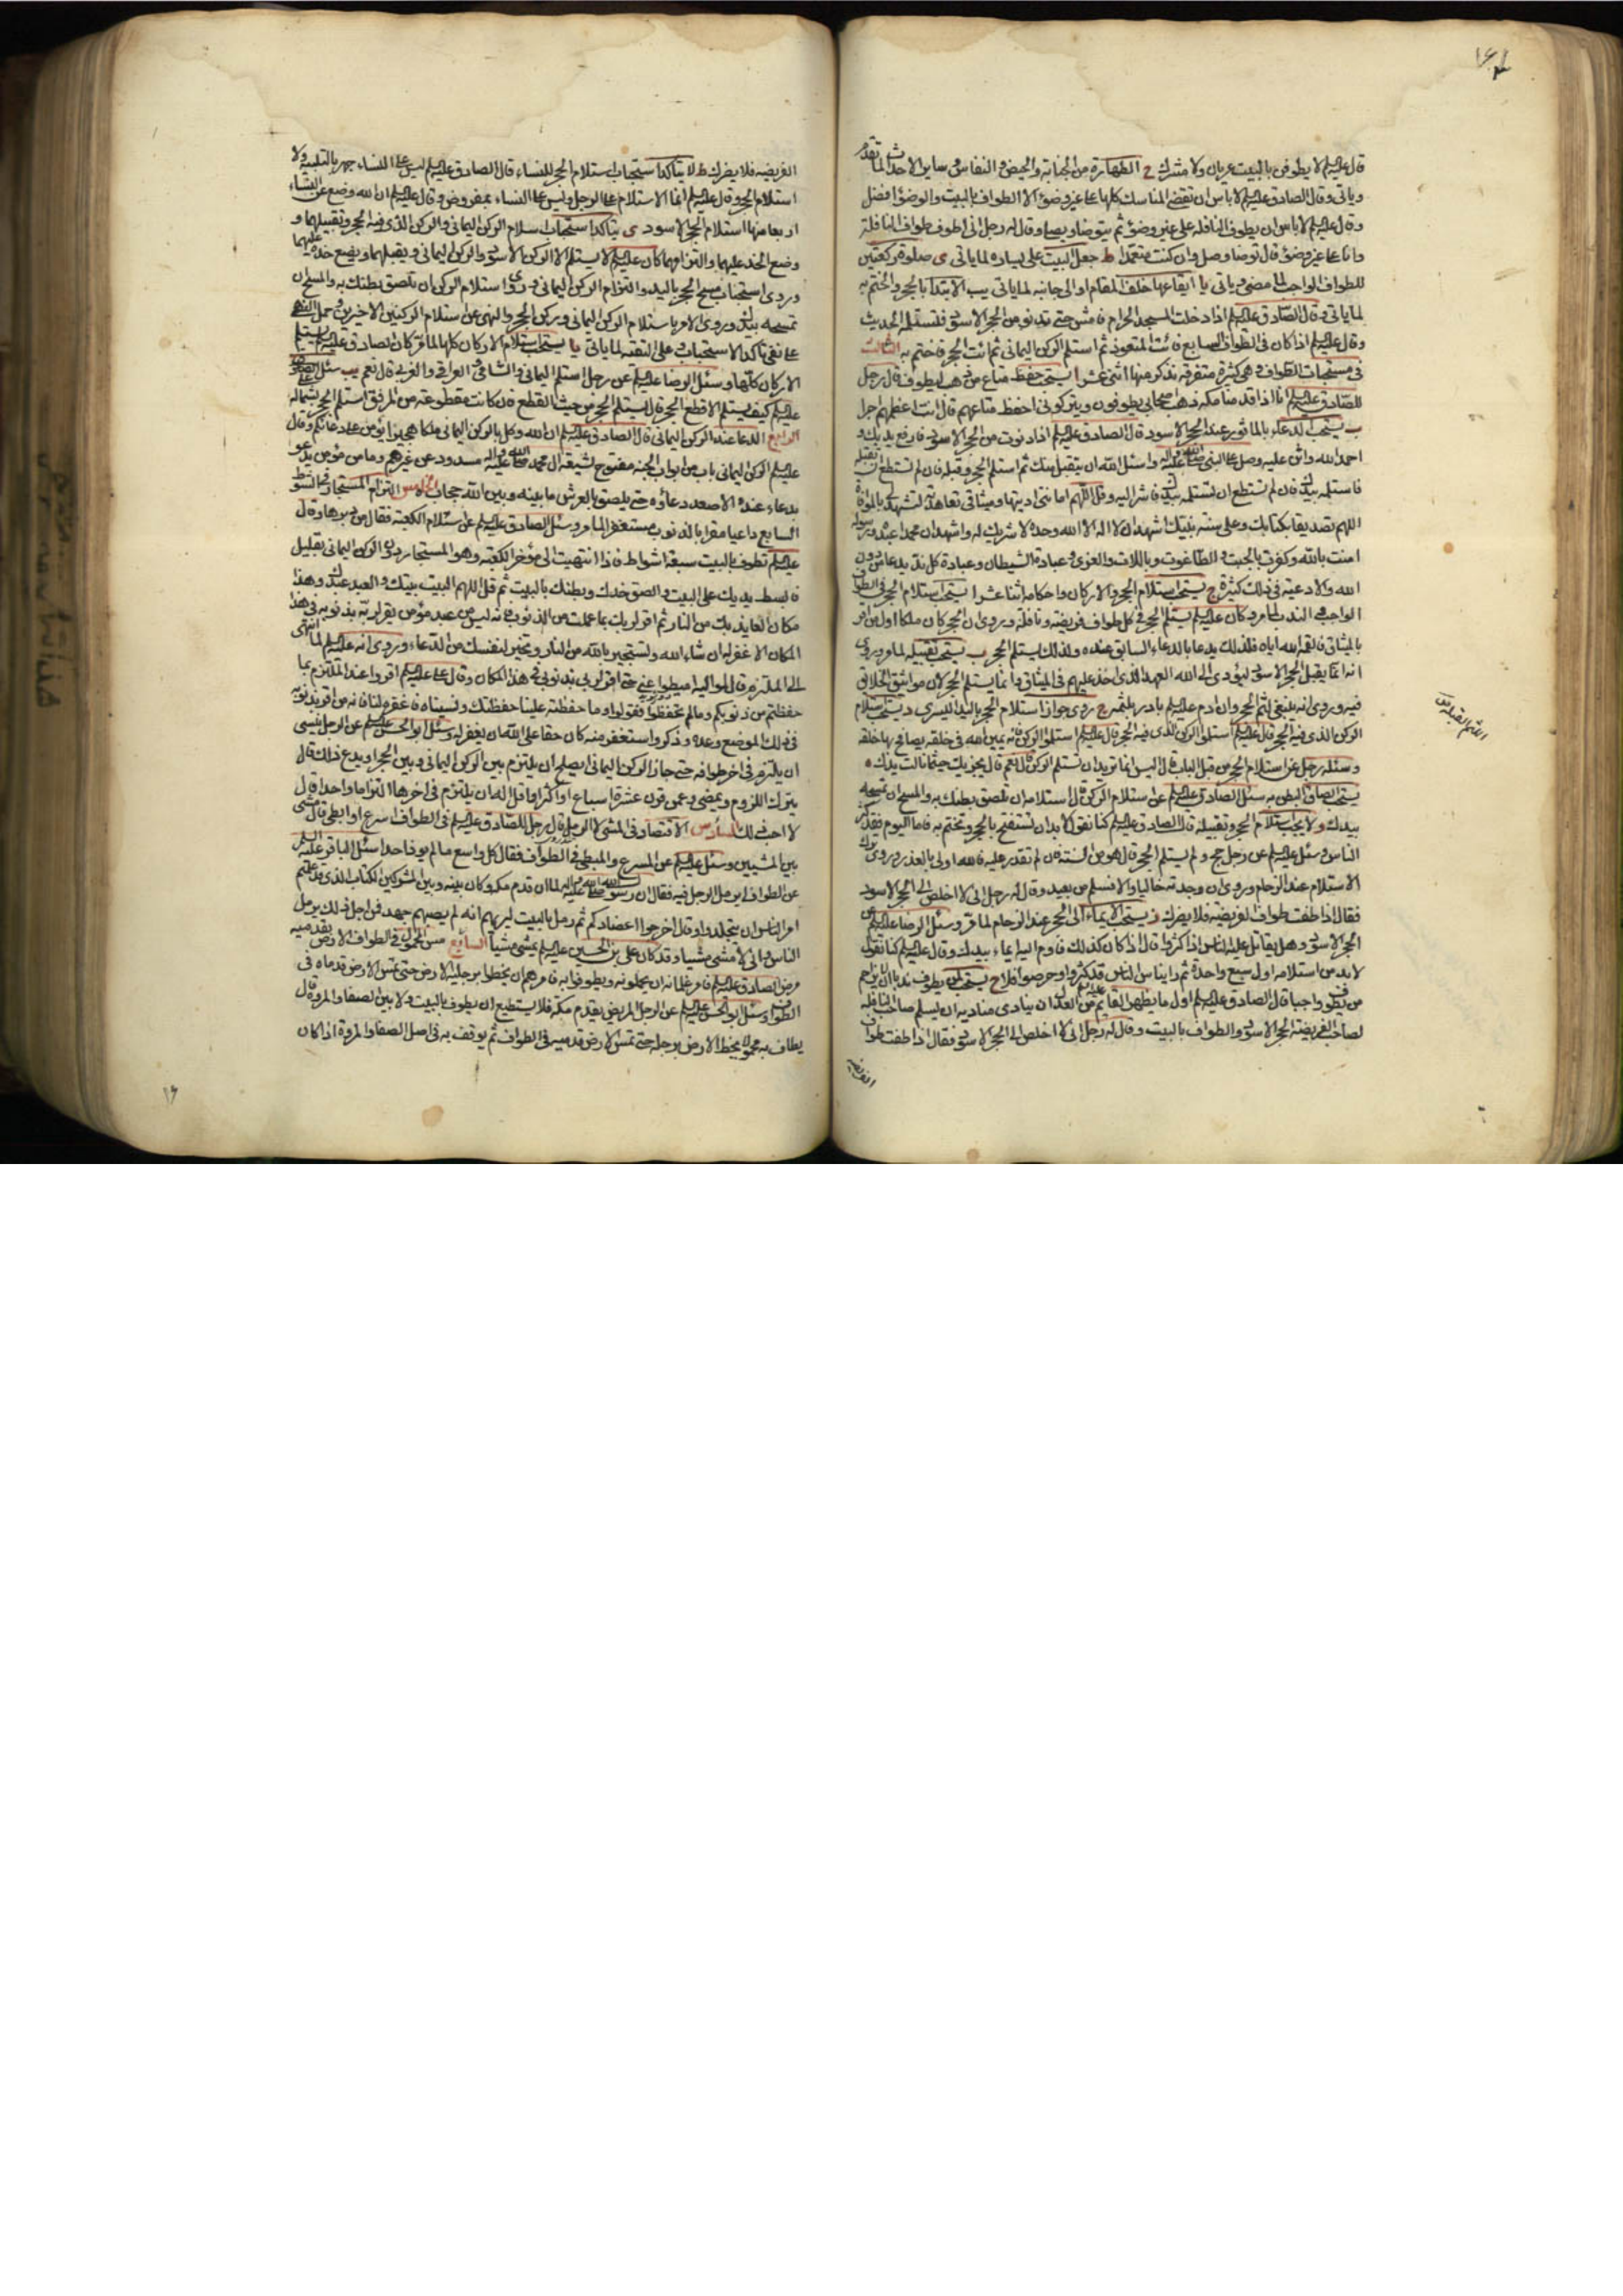 قال عليه السلم لا يطوفن بالبيت عريان ولا مشرك ح الطهارة من الجنابة والحيض والنفاس وساير الاحداث لما تقدم
وياتي وقال الصادق عليه السلم لا باس ان تقضي المناسك كلها على غير وضوء الا الطواف بالبيت والوضوء افضل
وقال عليه السلم لا باس ان يطوف النافلة على غير وضوء ثم يتوضا ويصلي وقال له رجل اني اطوف طواف النافلة
وانا على غير وضوء قال توضا وصل وان كنت متعمدا ط جعل البيت على يساره لما ياتي ى صلوة ركعتين
للطواف الواجب لما مضى وياتي يا ايقاعها خلف المقام او الى جانبه لما ياتي يب الابتداء بالحجر والختم به
لما ياتي وقال الصادق عليه السلم اذا دخلت المسجد الحرام فامش حتى تدنو من الحجر الاسود فتستلمه الحديث
وقال عليه السلم اذا كان في الطواف السابع فائت المتعوذ ثم استلم الركن اليماني ثم ائت الحجر فاختم به الثالث
في مستحبات الطواف وهي كثيرة متفرقة نذكر منها اثنى عشر ا يستحب حفظ متاع من ذهب ليطوف قال رجل
للصادق عليه السلم انا اذا قدمنا مكة ذهب اصحابي يطوفون ويتركوني احفظ متاعهم قال انت اعظمهم اجرا
ب يستحب الدعاء بالماثور عند الحجر الاسود قال الصادق عليه السلم اذا دنوت من الحجر الاسود فارفع يديك و
احمد الله واثن عليه وصل على النبي صلى الله عليه واله واسئل الله ان يتقبل منك ثم استلم الحجر وقبله فان لم تستطع ان تقبله
فاستلمه بيدك فان لم تستطع ان تستلمه بيدك فاشر اليه وقل اللهم امانتي اديتها وميثاقي تعاهدته لتشهد لي بالموافاة
اللهم تصديقا بكتابك وعلى سنة نبيك اشهد ان لا اله الا الله وحده لا شريك له واشهد ان محمدا عبده ورسوله
امنت بالله وكفرت بالجبت والطاغوت وباللات والعزى وعبادة الشيطان وعبادة كل ند يدعا من دون
الله والادعية في ذلك كثيرة ج يستحب استلام الحجر والاركان واحكامه اثنا عشر ا يستحب استلام الحجر في الطواف
الواجب والندب لما مر وكان عليه السلم يستلم الحجر في كل طواف فريضة ونافلة وروي ان الحجر كان ملكا اول من اقر
بالميثاق فالقمه الله اياه فلذلك يدعا بالدعاء السابق عنده ولذلك يستلم الحجر ب يستحب تقبيله لما مر وروي
انه انما يقبل الحجر الاسود ليؤدى الى الله العهد الذي اخذ عليهم في الميثاق وانما يستلم الحجر لان مواثيق الخلائق
فيه وروي انه ينبغي لثم الحجر وان ادم عليه السلم بادر بلثمه ج روي جواز استلام الحجر باليد اليسرى د يستحب استلام
الركن الذي فيه الحجر قال عليه السلم استلموا الركن الذي فيه الحجر قال عليه السلم استلموا الركن فانه يمين الله في خلقه يصافح بها خلقه
وسئله رجل عن استلام الحجر من قبل الباب قال اليس انما تريد ان تستلم الركن قال نعم قال يجزيك حيثما نالت يدك ه
يستحب الصاق البطن به سئل الصادق عليه السلم عن استلام الركن قال استلامه ان تلصق بطنك به والمسح ان تمسحه
بيدك و لا يجب استلام الحجر وتقبيله قال الصادق عليه السلم كنا نقول لا بد ان نستفتح بالحجر ونختم به فاما اليوم فقد كثر
الناس وسئل عليه السلم عن رجل حج ولم يستلم الحجر قال هو من السنة فان لم تقدر عليه فالله اولى بالعذر وروي ترك
الاستلام عند الزحام وروي ان وجدته خاليا والا فسلم من بعيد وقال له رجل اني لا اخلص الى الحجر الاسود
فقال اذا طفت طواف الفريضة فلا يضرك ز يستحب الايماء الى الحجر عند الزحام لما مر وسئل الرضا عليه السلم عن
الحجر الاسود وهل يقاتل عليه الناس اذا كثروا قال اذا كان كذلك فاوم اليه ايماء بيدك وقال عليه السلم كنا نقول
لا بد من استلامه اول سبع واحدة ثم راينا الناس قد كثروا وحرصوا فلا ح يستحب لمن يطوف ندبا ان لا يزاحم
من يطوف واجبا قال الصادق عليه السلم اول ما يظهر القائم عليه السلم من العدل ان ينادي مناديه ان يسلم صاحب النافلة
لصاحب الفريضة الحجر الاسود والطواف بالبيت وقال له رجل اني لا اخلص الى الحجر الاسود فقال اذا طفت طواف
الفريضة
اللثم القبلة ق س
الفريضة فلا يضرك ط لا يتاكد استحباب استلام الحجر للنساء قال الصادق عليه السلم ليس على النساء جهر بالتلبية ولا
استلام الحجر وقال عليه السلم انما الاستلام على الرجل وليس على النساء بمفروض وقال عليه السلم ان الله وضع عن النساء
اربعا منها استلام الحجر الاسود ى يتاكد استحباب استلام الركن اليماني والركن الذي فيه الحجر وتقبيلهما و
وضع الخد عليهما والتزامهما كان عليه السلم لا يستلم الا الركن الاسود والركن اليماني ويقبلهما ويضع خده عليهما
وروي استحباب مسح الحجر باليد والتزام الركن اليماني وروي استلام الركن ان تلصق بطنك به والمسح ان
تمسحه بيدك وروي الامر باستلام الركن اليماني وركن الحجر والنهي عن استلام الركنين الاخيرين وحمل النهي
على نفي تاكد الاستحباب وعلى التقية لما ياتي يا يستحب استلام الاركان كلها لما مر كان الصادق عليه السلم يستلم
الاركان كلها وسئل الرضا عليه السلم عن رجل استلم اليماني والشامي والعراقي والغربي قال نعم يب سئل الصادق
عليه السلم كيف يستلم الاقطع الحجر قال يستلم الحجر من حيث القطع فان كانت مقطوعة من المرفق استلم الحجر بشماله
الرابع الدعا عند الركن اليماني قال الصادق عليه السلم ان الله وكل بالركن اليماني ملكا هجيرا يؤمن على دعائكم وقال
عليه السلم الركن اليماني باب من ابواب الجنة مفتوح لشيعة ال محمد صلى الله عليه واله مسدود عن غيرهم وما من مؤمن يدعو
بدعاء عنده الا صعد دعاؤه حتى يلصق بالعرش ما بينه وبين الله حجاب الخامس التزام المستجار في الشوط
السابع داعيا مقرا بالذنوب مستغفرا لما مر وسئل الصادق عليه السلم عن استلام الكعبة فقال من دبرها وقال
عليه السلم تطوف بالبيت سبعة اشواط فاذا انتهيت الى مؤخر الكعبة وهو المستجار دون الركن اليماني بقليل
فابسط يديك على البيت والصق خدك وبطنك بالبيت ثم قل اللهم البيت بيتك والعبد عبدك وهذا
مكان العايذ بك من النار ثم اقر لربك بما عملت من الذنوب فانه ليس من عبد مؤمن يقر لربه بذنوبه في هذا
المكان الا غفر له ان شاء الله وتستجير بالله من النار وتخير لنفسك من الدعاء وروي انه عليه السلم لما انتهى
الى الملتزم قال لمواليه اميطوا عني حتى اقر لربي بذنوبي في هذا المكان وقال علي عليه السلم اقروا عند الملتزم بما
حفظتم من ذنوبكم وما لم تحفظوا فقولوا وما حفظته علينا حفظتك ونسيناه فاغفره لنا فانه من اقر بذنوبه
في ذلك الموضع وعده وذكره واستغفر منه كان حقا على الله ان يغفر له وسئل ابو الحسن عليه السلم عن الرجل نسي
ان يلتزم في اخر طوافه حتى جاز الركن اليماني ايصلح ان يلتزم بين الركن اليماني وبين الحجر او يدع ذلك قال
يترك اللزوم ويمضي وعمن قرن عشرة اسباع او اكثر او اقل اله ان يلتزم في اخرها التزاما واحدا قال
لا احب ذلك السادس الاقتصاد في المشي لا الرمل قال رجل للصادق عليه السلم في الطواف اسرع او ابطئ قال مشي
بين المشيين وسئل عليه السلم عن المسرع والمبطئ في الطواف فقال كل واسع ما لم يوذ احدا سئل الباقر عليه السلم
عن الطواف ايرمل الرجل فيه فقال ان رسول الله صلى الله عليه واله لما ان قدم مكة وكان بينه وبين المشركين الكتاب الذي قد علمتم
امر الناس ان يتجلدوا وقال اخرجوا اعضادكم ثم رمل بالبيت ليريهم انه لم يصبهم جهد فمن اجل ذلك يرمل
الناس واني لامشي مشيا وقد كان علي بن الحسين عليه السلم يمشي مشيا السابع مس المحمول في الطواف الارض بقدميه
مرض الصادق عليه السلم فامر غلمانه ان يحملونه ويطوفوا به فامرهم ان يخطوا برجليه الارض حتى تمس الارض قدماه في
الطواف وسئل ابو الحسن عليه السلم عن الرجل المريض يقدم مكة فلا يستطيع ان يطوف بالبيت ولا بين الصفا والمروة قال
يطاف به محمولا يخط الارض برجليه حتى تمس الارض قدميه في الطواف ثم يوقف به في اصل الصفا والمروة اذا كان